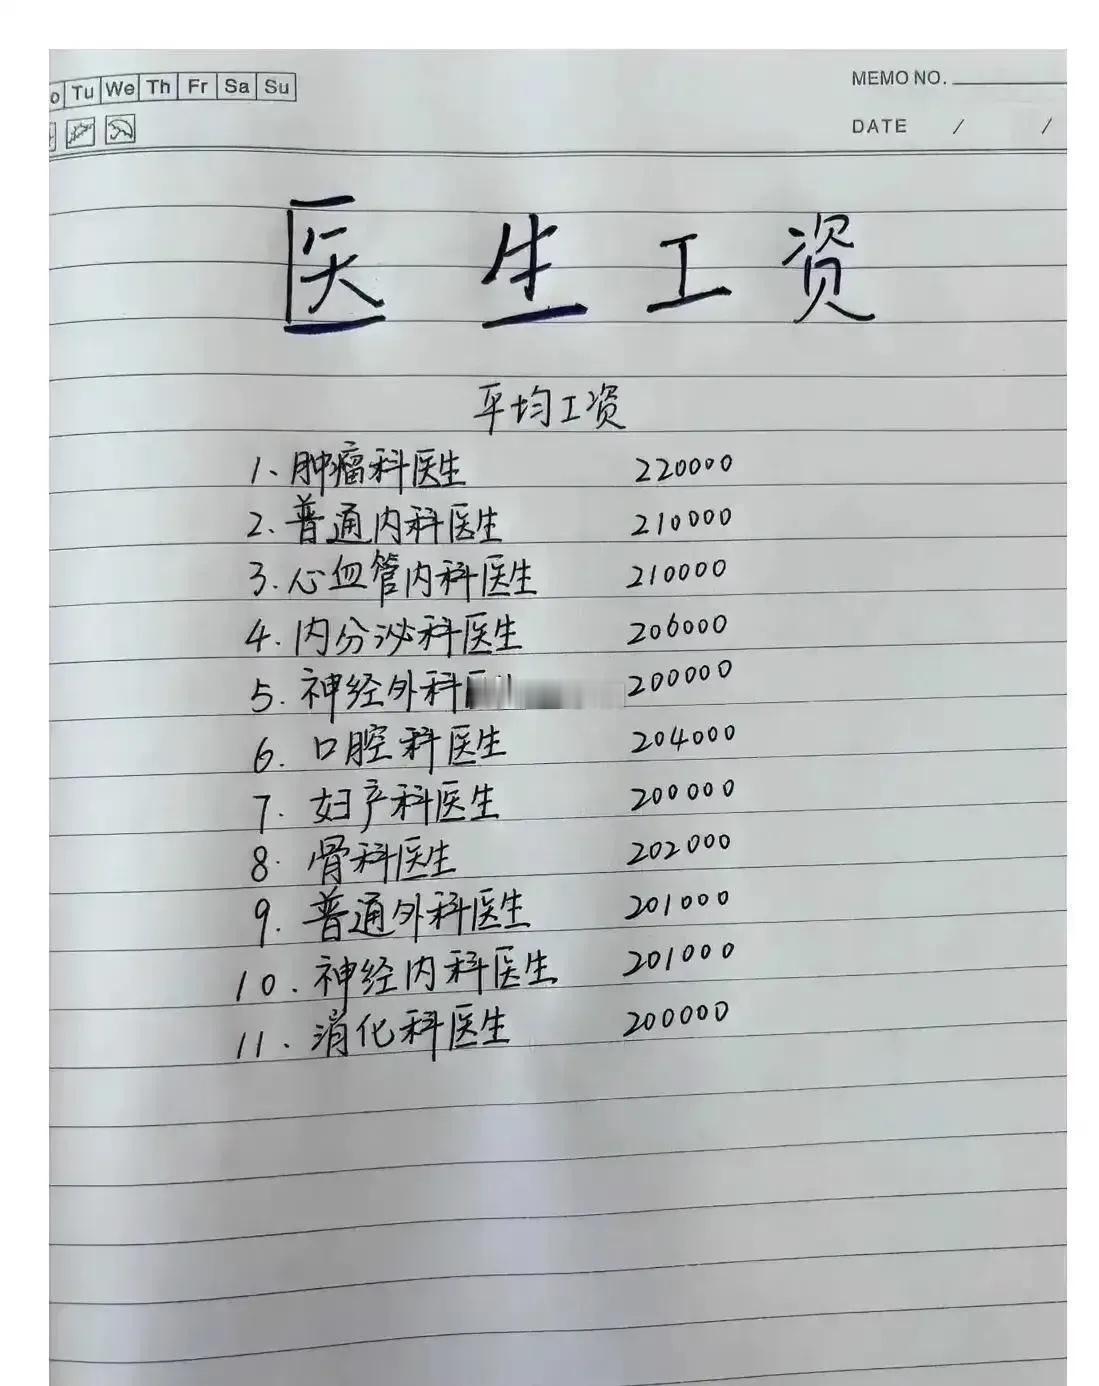 Tu We Th Fr Sa Su
MEMO NO.
DATE / /
医生工资
平均工资
1、肿瘤科医生 220000
2、普通内科医生 210000
3.心血管内科医生 210000
4.内分泌科医生 206000
5.神经外科 200000
6.口腔科医生 204000
7.妇产科医生 200000
8.骨科医生 202000
9.普通外科医生 201000
10.神经内科医生 201000
11.消化科医生 200000